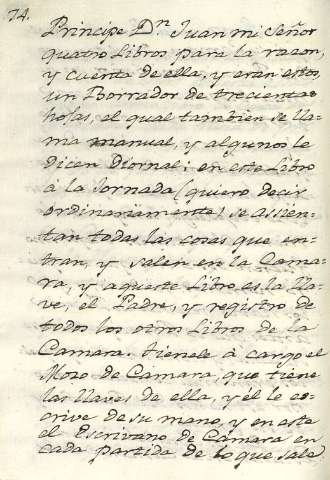 74.
Principe D.n Juan mi Señor
quatro Libros para la razon,
y cuenta de ella, y eran estos,
un Borrador de trecientas
hojas, el qual tambien se lla-
ma manual, y algunos le
dicen Diornal; en este Libro
à la Jornada (quiero decir
ordinariamente) se assien-
tan todas las cosas que en-
tran, y salen en la Cama-
ra, y aqueste Libro es la lla-
ve, el Padre, y registro de
todos los otros Libros de la
Camara. tienele à cargo el
Mozo de Camara, que tiene
las llaves de ella, y él le es-
crive de su mano, y en este
el Escrivano de Camara en
cada partida de lo que sale